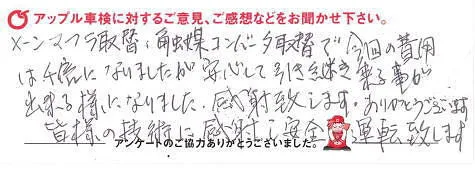 アップル車検に対するご意見、ご感想などをお聞かせ下さい。
メーンマフラ取替、触媒コンバータ取替で今回の費用
は千倍になりましたが安心して引き続き乗る事が
出来る様になりました。感謝致します。ありがとうございます
皆様の技術に感謝し安全運転致します
アンケートのご協力ありがとうございました。